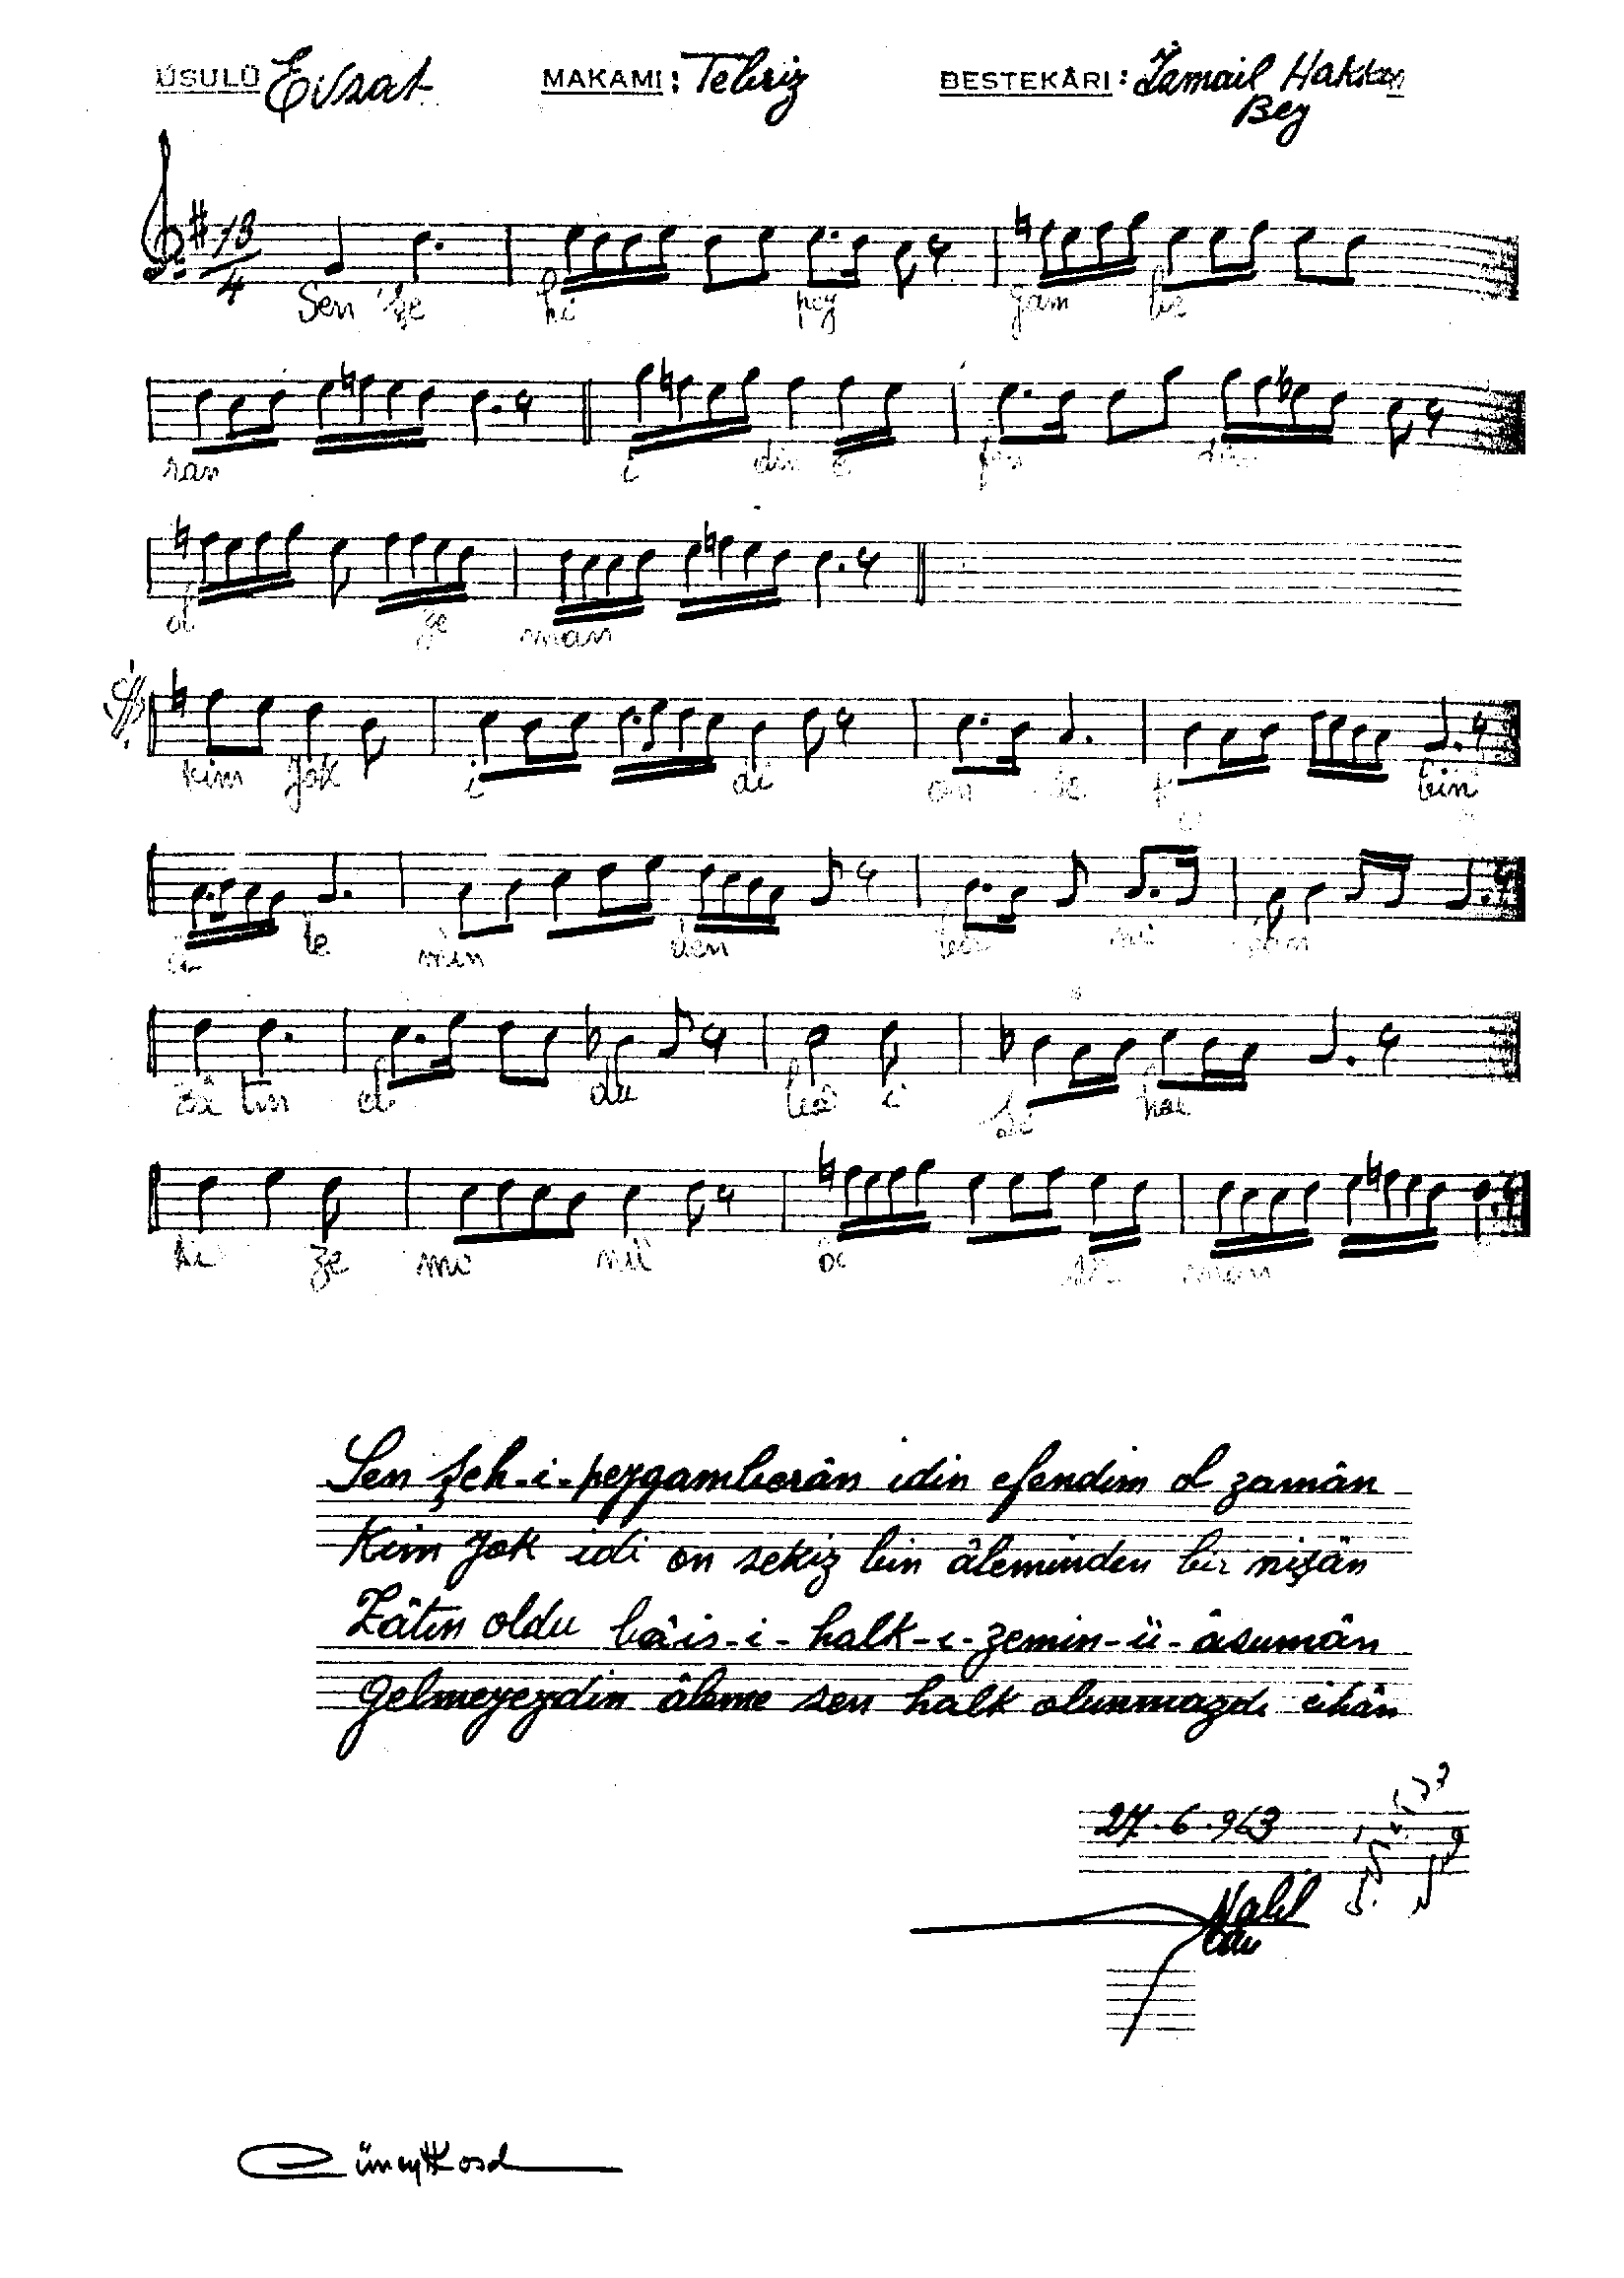 ÜSULÜ Evsat MAKAMI: Tebriz BESTEKÂRI: İsmail Hakkı
Bey
13
4
Sen şe hi pey gam be
ran i din e fen dim
ol ze man
kim yok i di on se ki bin
â le min den bir ni şan
zâ tın ol du bâ i si hal
ki ze mi nü âs su man
Sen şeh-i-peygamberân idin efendim ol zamân
Kim yok idi on sekiz bin âleminden bir nişân
Zâtın oldu bâis-i-halk-ı-zemin-ü-âsumân
Gelmeyeydin âleme sen halk olunmazdı cihân
27.6.963
Cüneyt Kosal